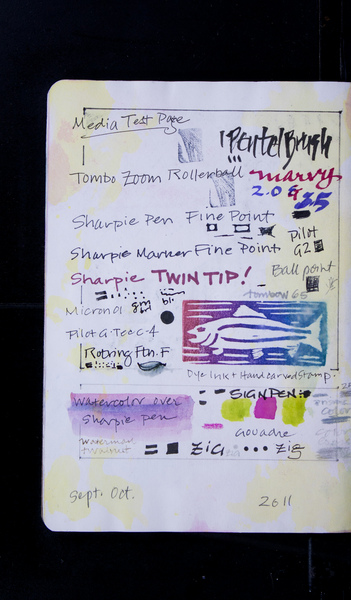 Media Test Page
Pentel Brush
Tombo Zoom Rollerball
marvy
2.0 &
35
Sharpie Pen Fine Point
Pilot
G2
Sharpie Marker Fine Point
Ball point
Sharpie TWIN TIP!
tombow 65
Micron 01
Pilot G-Tec C-4
Rotring Ftn. F
Dye Ink + Hand carved Stamp
SIGN PEN:
Watercolor over
Sharpie pen
Gouache
ZIG
Zig
Sept. Oct.
2011